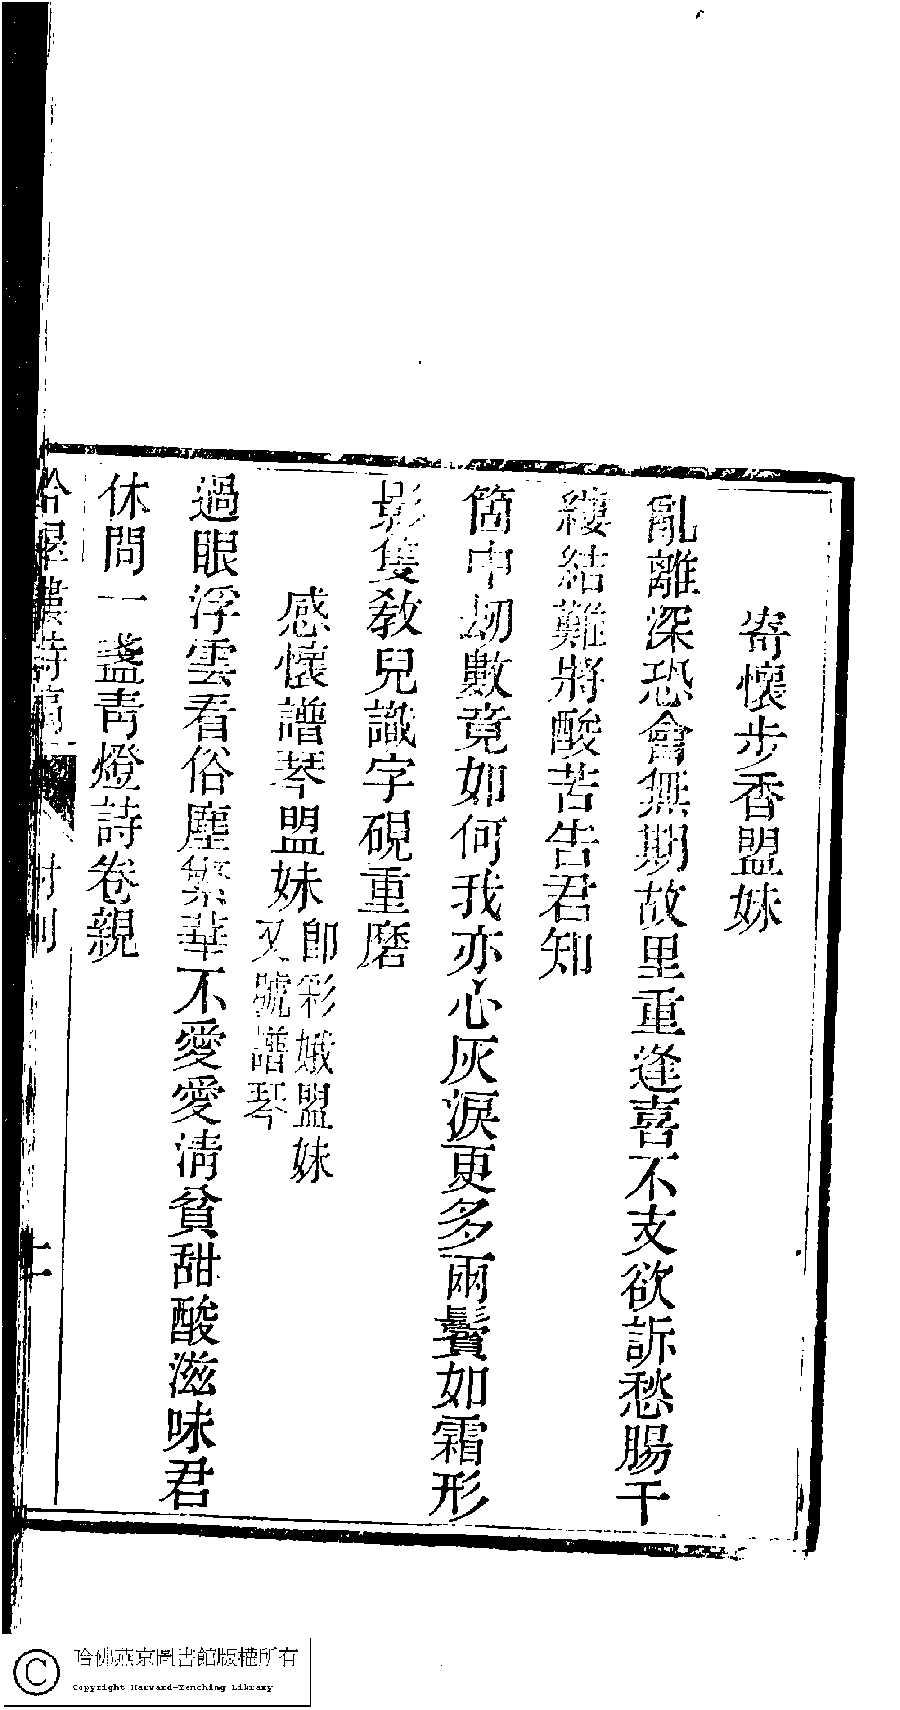 寄懷步香盟妹
亂離深恐會無期故里重逢喜不支欲訴愁腸千
縷結難將酸苦告君知
箇中劫數竟如何我亦心灰淚更多兩鬢如霜形
影隻敎兒識字硯重磨
感懷譜琴盟妹
卽彩娥盟妹
又號譜琴
過眼浮雲看俗塵繁華不愛愛淸貧甜酸滋味君
休問一盞靑燈詩卷親
詩
附刻
哈佛燕京圖書館版權所有
Copyright Harvard-Yenching Library